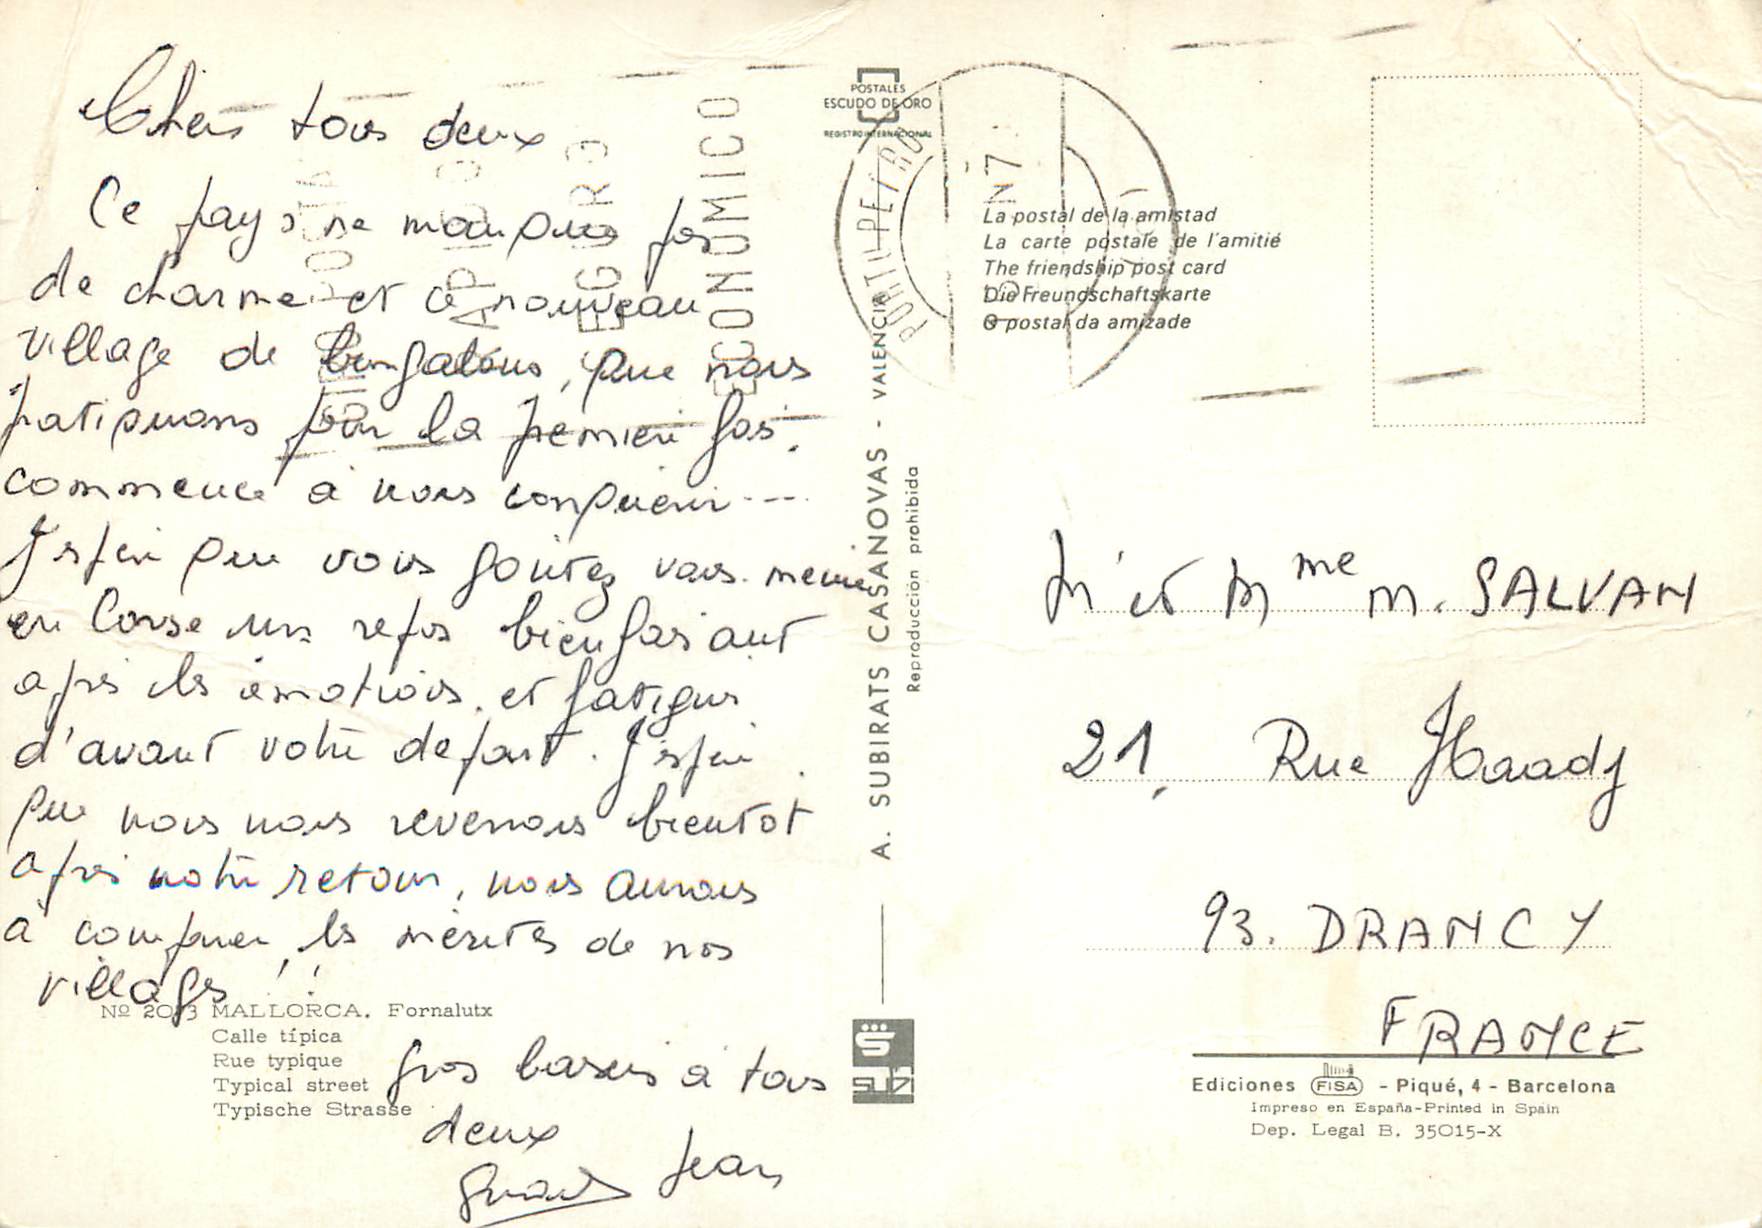 Chers tous deux
Ce pays ne manque pas
de charme et ce nouveau
village de bungalows, que nous
pratiquons pour la première fois,
commence à nous conquérir ---
J'espère que vous goûtez vous-même
en Corse un repos bienfaisant
après les émotions et fatigues
d'avant votre départ. J'espère
que nous nous reverrons bientôt
après notre retour, nous aurons
à comparer les mérites de nos
villages !!
Gros baisers à tous
deux
Jean
Nº 2013 MALLORCA. Fornalutx
Calle típica
Rue typique
Typical street
Typische Strasse
POSTALES
ESCUDO DE ORO
REGISTRO INTERNACIONAL
A. SUBIRATS CASANOVAS - VALENCIA
Reproducción prohibida
SUVI
ECONOMICO
La postal de la amistad
La carte postale de l'amitié
The friendship post card
Die Freundschaftskarte
O postal da amizade
Mr et Mme M. SALVAN
21, Rue Haady
93. DRANCY
FRANCE
Ediciones FISA - Piqué, 4 - Barcelona
Impreso en España-Printed in Spain
Dep. Legal B. 35015-X